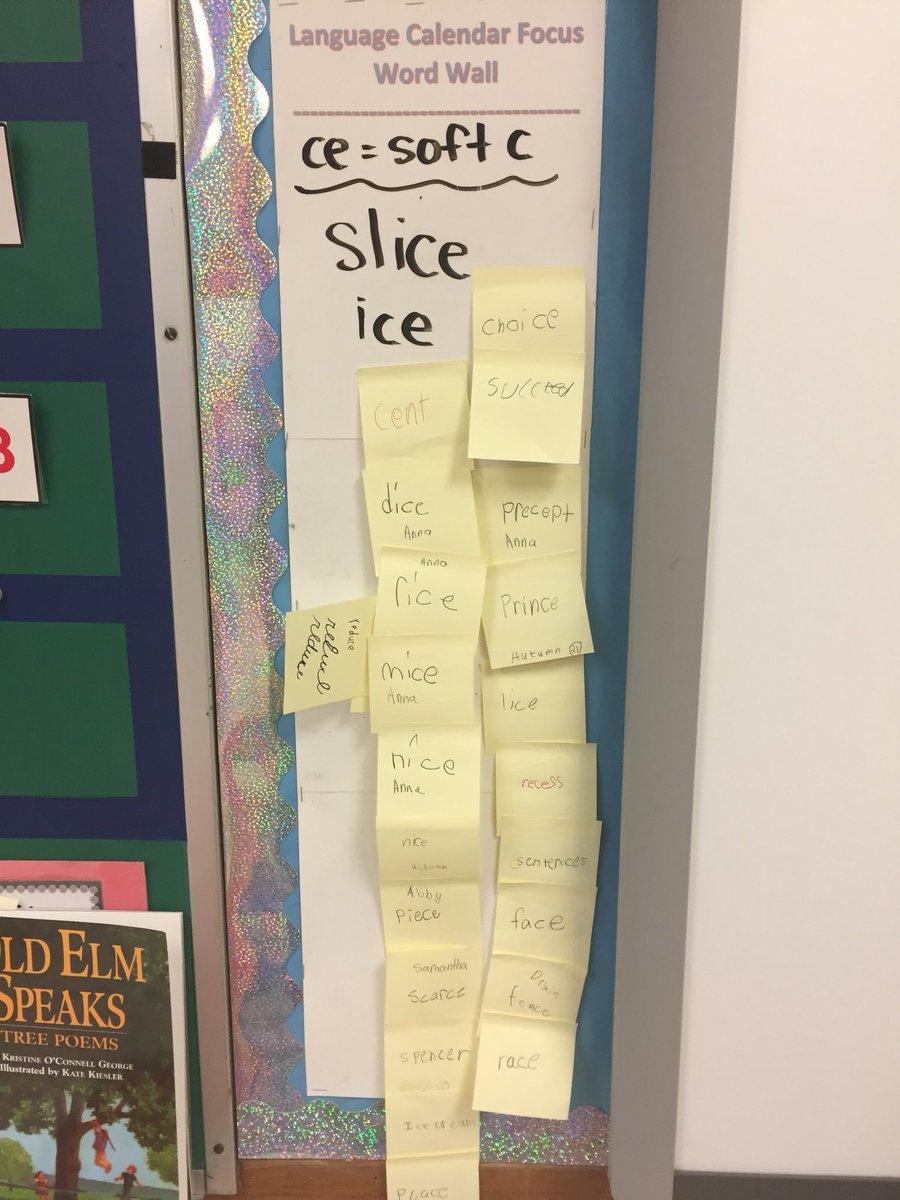 Language Calendar Focus
Word Wall
ce = soft c
slice
ice
choice
cent
dice
Anna
Anna
rice
reduce
reduce
mice
Anna
nice
Anna
nice
Autumn
Abby
Piece
Samantha
scarce
spencer
Ice cream
Place
precept
Anna
Prince
Autumn 21
lice
recess
sentences
face
fence
race
B
OLD ELM
SPEAKS
TREE POEMS
KRISTINE O'CONNELL GEORGE
Illustrated by KATE KIESLER